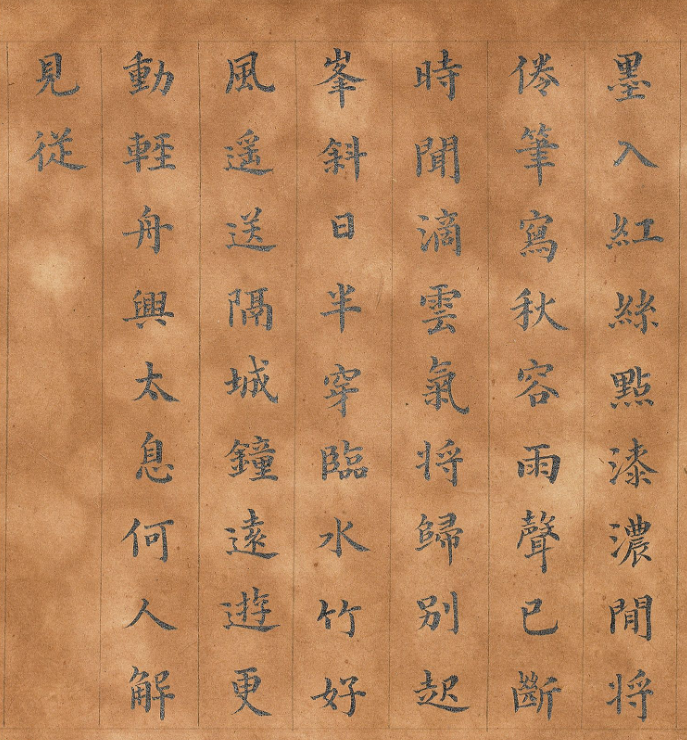 墨入紅絲點漆濃閒将
倦筆寫秋容雨聲已斷
時聞滴雲氣将歸別起
峯斜日半穿臨水竹好
風遥送隔城鐘遠遊更
動輕舟興太息何人解
見従